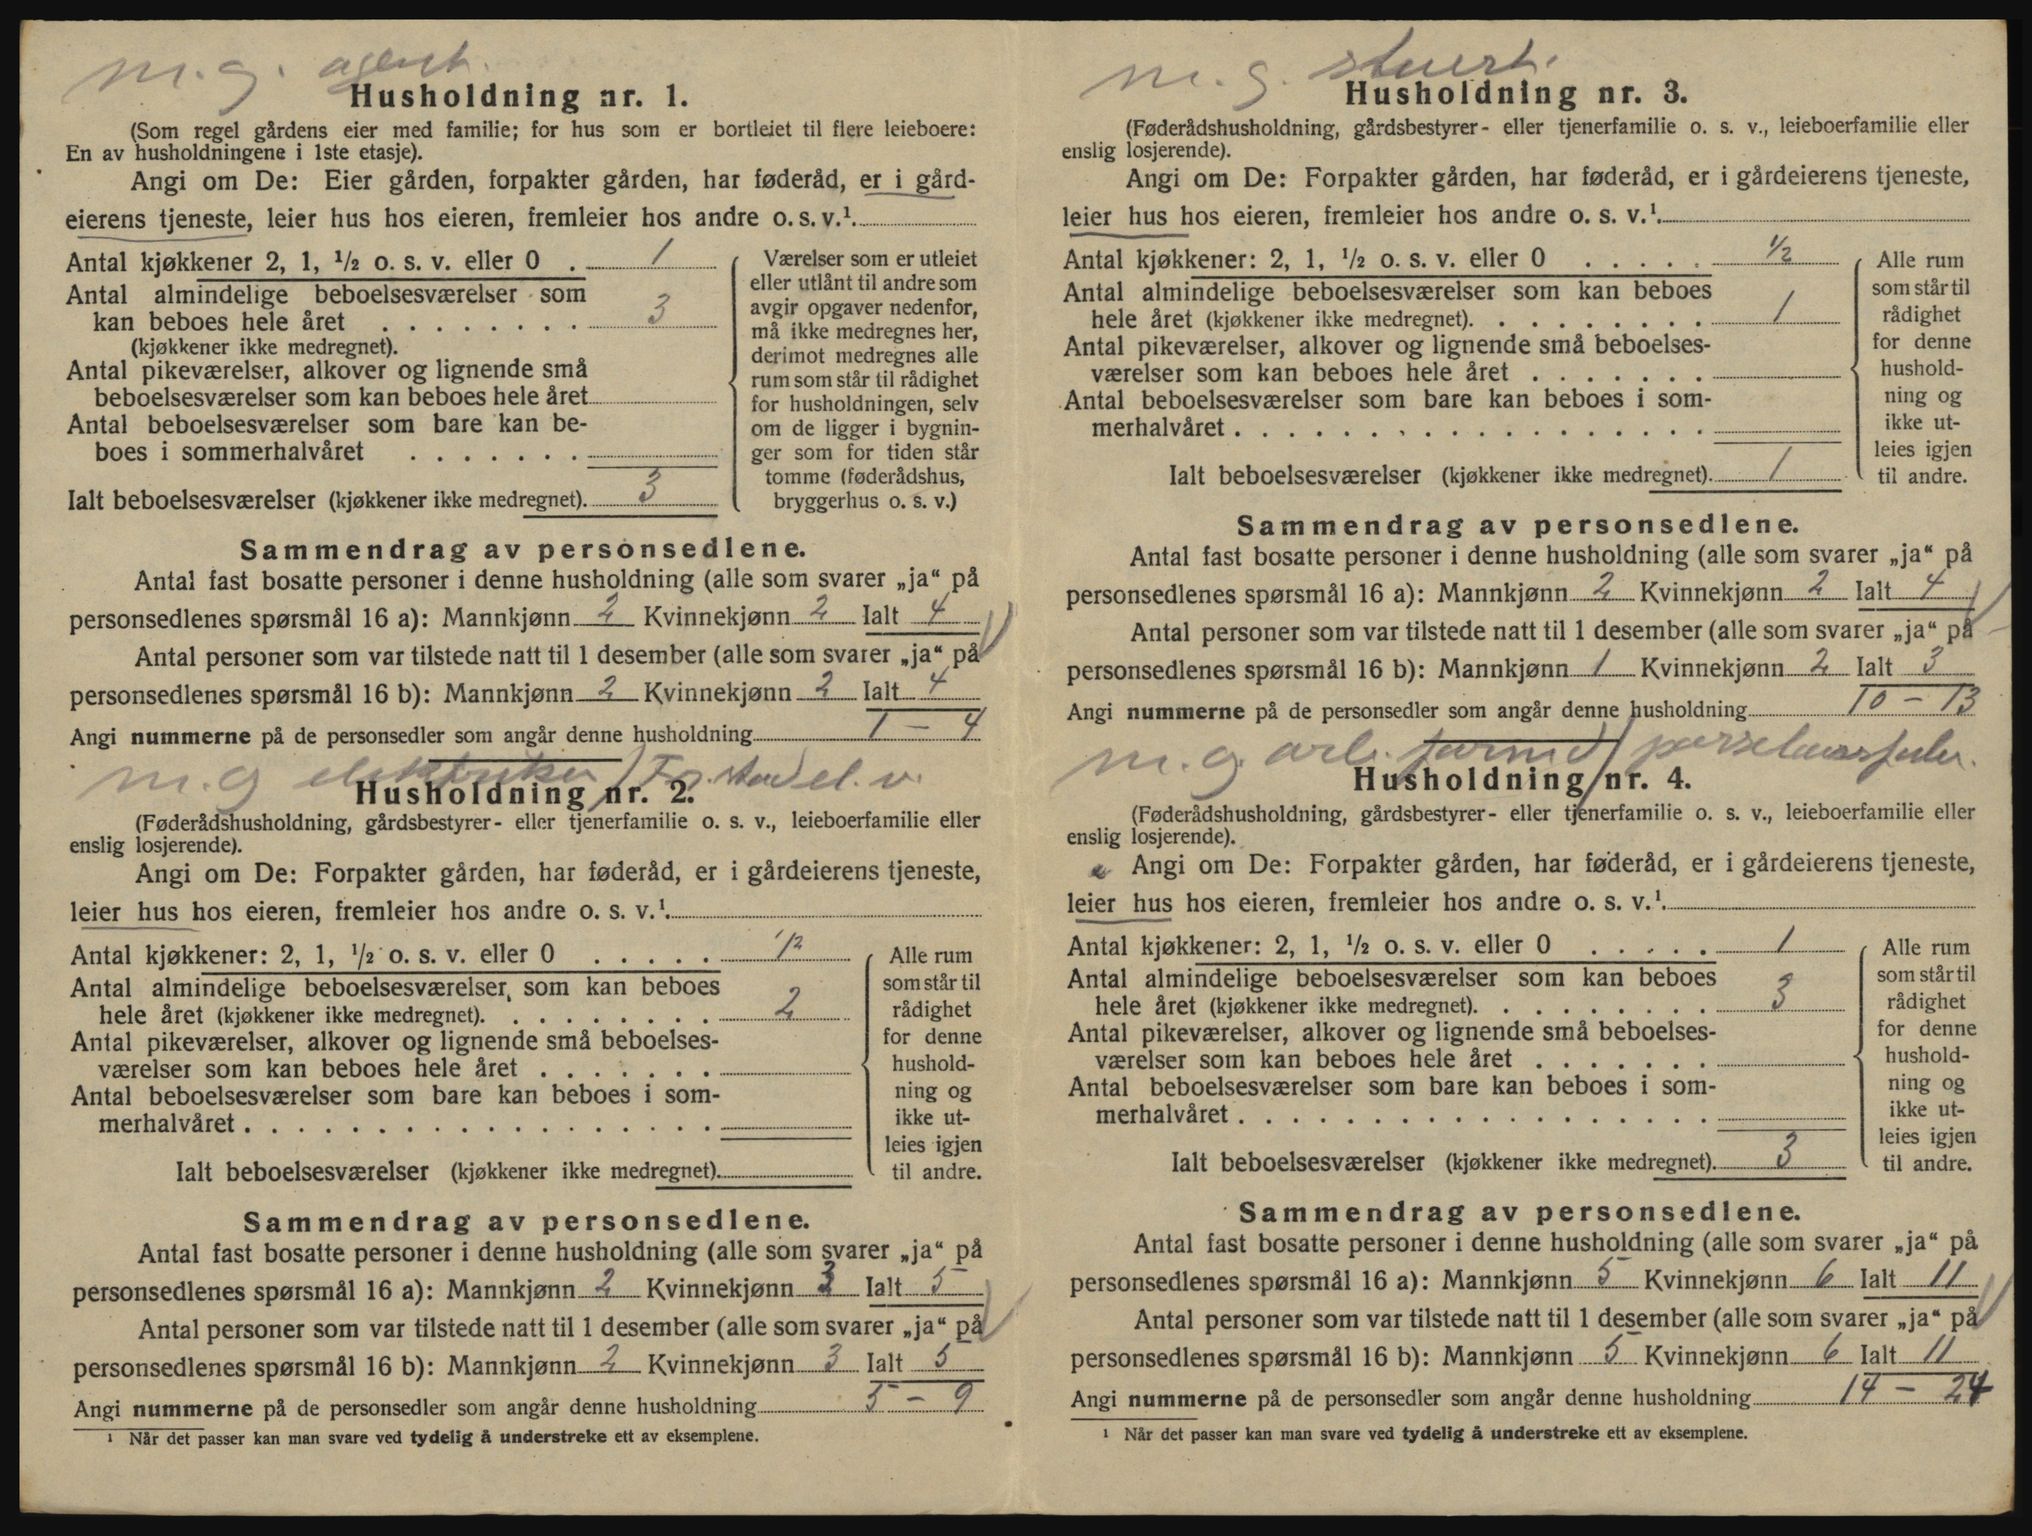 m. g. agent.
Husholdning nr. 1.
(Som regel gårdens eier med familie; for hus som er bortleiet til flere leieboere:
En av husholdningene i 1ste etasje).
Angi om De: Eier gården, forpakter gården, har føderåd, er i gård-
eierens tjeneste, leier hus hos eieren, fremleier hos andre o. s. v.¹.
Antal kjøkkener 2, 1, ½ o. s. v. eller 0 . 1
Antal almindelige beboelsesværelser som
kan beboes hele året . . . . . . . . 3
(kjøkkener ikke medregnet).
Antal pikeværelser, alkover og lignende små
beboelsesværelser som kan beboes hele året
Antal beboelsesværelser som bare kan be-
boes i sommerhalvåret . . . . . . .
Ialt beboelsesværelser (kjøkkener ikke medregnet). 3
Værelser som er utleiet
eller utlånt til andre som
avgir opgaver nedenfor,
må ikke medregnes her,
derimot medregnes alle
rum som står til rådighet
for husholdningen, selv
om de ligger i bygnin-
ger som for tiden står
tomme (føderådshus,
bryggerhus o. s. v.)
Sammendrag av personsedlene.
Antal fast bosatte personer i denne husholdning (alle som svarer „ja“ på
personsedlenes spørsmål 16 a): Mannkjønn 2 Kvinnekjønn 2 Ialt 4
Antal personer som var tilstede natt til 1 desember (alle som svarer „ja“ på
personsedlenes spørsmål 16 b): Mannkjønn 2 Kvinnekjønn 2 Ialt 4
Angi nummerne på de personsedler som angår denne husholdning 1 – 4
m. g elektriker / el. v.
Husholdning nr. 2.
(Føderådshusholdning, gårdsbestyrer- eller tjenerfamilie o. s. v., leieboerfamilie eller
enslig losjerende).
Angi om De: Forpakter gården, har føderåd, er i gårdeierens tjeneste,
leier hus hos eieren, fremleier hos andre o. s. v.¹.
Antal kjøkkener: 2, 1, ½ o. s. v. eller 0 . . . . . 1/2
Antal almindelige beboelsesværelser som kan beboes
hele året (kjøkkener ikke medregnet). . . . . . . . . 2
Antal pikeværelser, alkover og lignende små beboelses-
værelser som kan beboes hele året . . . . . . .
Antal beboelsesværelser som bare kan beboes i som-
merhalvåret . . . . . . . . . . . . . . . . . .
Ialt beboelsesværelser (kjøkkener ikke medregnet).
Alle rum
som står til
rådighet
for denne
hushold-
ning og
ikke ut-
leies igjen
til andre.
Sammendrag av personsedlene.
Antal fast bosatte personer i denne husholdning (alle som svarer „ja“ på
personsedlenes spørsmål 16 a): Mannkjønn 2 Kvinnekjønn 3 Ialt 5
Antal personer som var tilstede natt til 1 desember (alle som svarer „ja“ på
personsedlenes spørsmål 16 b): Mannkjønn 2 Kvinnekjønn 3 Ialt 5
Angi nummerne på de personsedler som angår denne husholdning 5 – 9
¹ Når det passer kan man svare ved tydelig å understreke ett av eksemplene.
m. g. stuert.
Husholdning nr. 3.
(Føderådshusholdning, gårdsbestyrer- eller tjenerfamilie o. s. v., leieboerfamilie eller
enslig losjerende).
Angi om De: Forpakter gården, har føderåd, er i gårdeierens tjeneste,
leier hus hos eieren, fremleier hos andre o. s. v.¹.
Antal kjøkkener: 2, 1, ½ o. s. v. eller 0 . . . . . 1/2
Antal almindelige beboelsesværelser som kan beboes
hele året (kjøkkener ikke medregnet). . . . . . . . . 1
Antal pikeværelser, alkover og lignende små beboelses-
værelser som kan beboes hele året . . . . . . .
Antal beboelsesværelser som bare kan beboes i som-
merhalvåret . . . . . . . . . . . . . . . . . .
Ialt beboelsesværelser (kjøkkener ikke medregnet). 1
Alle rum
som står til
rådighet
for denne
hushold-
ning og
ikke ut-
leies igjen
til andre.
Sammendrag av personsedlene.
Antal fast bosatte personer i denne husholdning (alle som svarer „ja“ på
personsedlenes spørsmål 16 a): Mannkjønn 2 Kvinnekjønn 2 Ialt 4
Antal personer som var tilstede natt til 1 desember (alle som svarer „ja“ på
personsedlenes spørsmål 16 b): Mannkjønn 1 Kvinnekjønn 2 Ialt 3
Angi nummerne på de personsedler som angår denne husholdning 10 – 13
m. g. arb. /
Husholdning nr. 4.
(Føderådshusholdning, gårdsbestyrer- eller tjenerfamilie o. s. v., leieboerfamilie eller
enslig losjerende).
Angi om De: Forpakter gården, har føderåd, er i gårdeierens tjeneste,
leier hus hos eieren, fremleier hos andre o. s. v.¹.
Antal kjøkkener: 2, 1, ½ o. s. v. eller 0 . . . . . 1
Antal almindelige beboelsesværelser som kan beboes
hele året (kjøkkener ikke medregnet). . . . . . . . . 3
Antal pikeværelser, alkover og lignende små beboelses-
værelser som kan beboes hele året . . . . . . .
Antal beboelsesværelser som bare kan beboes i som-
merhalvåret . . . . . . . . . . . . . . . . . .
Ialt beboelsesværelser (kjøkkener ikke medregnet). 3
Alle rum
som står til
rådighet
for denne
hushold-
ning og
ikke ut-
leies igjen
til andre.
Sammendrag av personsedlene.
Antal fast bosatte personer i denne husholdning (alle som svarer „ja“ på
personsedlenes spørsmål 16 a): Mannkjønn 5 Kvinnekjønn 6 Ialt 11
Antal personer som var tilstede natt til 1 desember (alle som svarer „ja“ på
personsedlenes spørsmål 16 b): Mannkjønn 5 Kvinnekjønn 6 Ialt 11
Angi nummerne på de personsedler som angår denne husholdning 14 – 24
¹ Når det passer kan man svare ved tydelig å understreke ett av eksemplene.